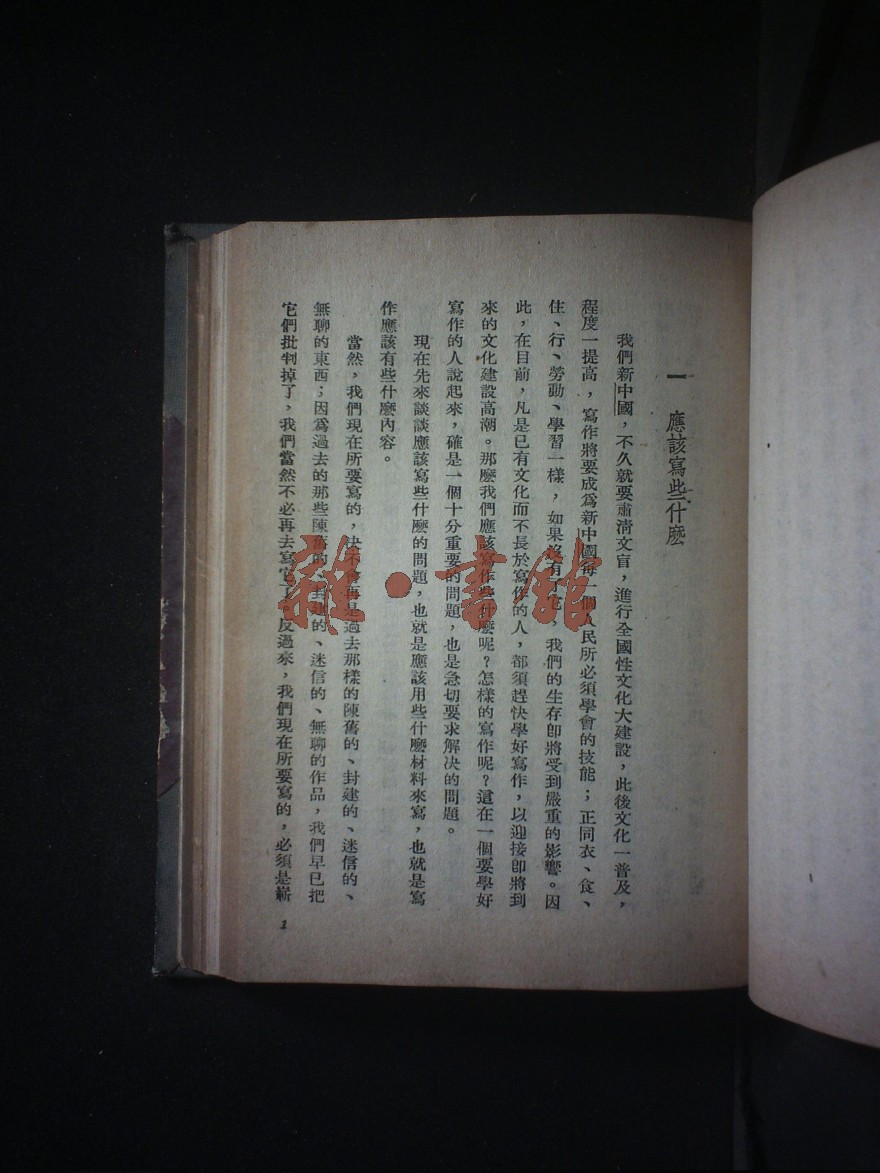 一 應該寫些什麽
我們新中國，不久就要肅清文盲，進行全國性文化大建設，此後文化一普及，
程度一提高，寫作將要成爲新中國每一個人民所必須學會的技能；正同衣、食、
住、行、勞動、學習一樣，如果沒有了它，我們的生存即將受到嚴重的影響。因
此，在目前，凡是已有文化而不長於寫作的人，都須趕快學好寫作，以迎接即將到
來的文化建設高潮。那麽我們應該寫作些什麽呢？怎樣的寫作呢？這在一個要學好
寫作的人說起來，確是一個十分重要的問題，也是急切要求解决的問題。
現在先來談談應該寫些什麽的問題，也就是應該用些什麽材料來寫，也就是寫
作應該有些什麽內容。
當然，我們現在所要寫的，决不會再是過去那樣的陳舊的、封建的、迷信的、
無聊的東西；因爲過去的那些陳舊的、封建的、迷信的、無聊的作品，我們早已把
它們批判掉了，我們當然不必再去寫它了。反過來，我們現在所要寫的，必須是嶄
1
雜·書館